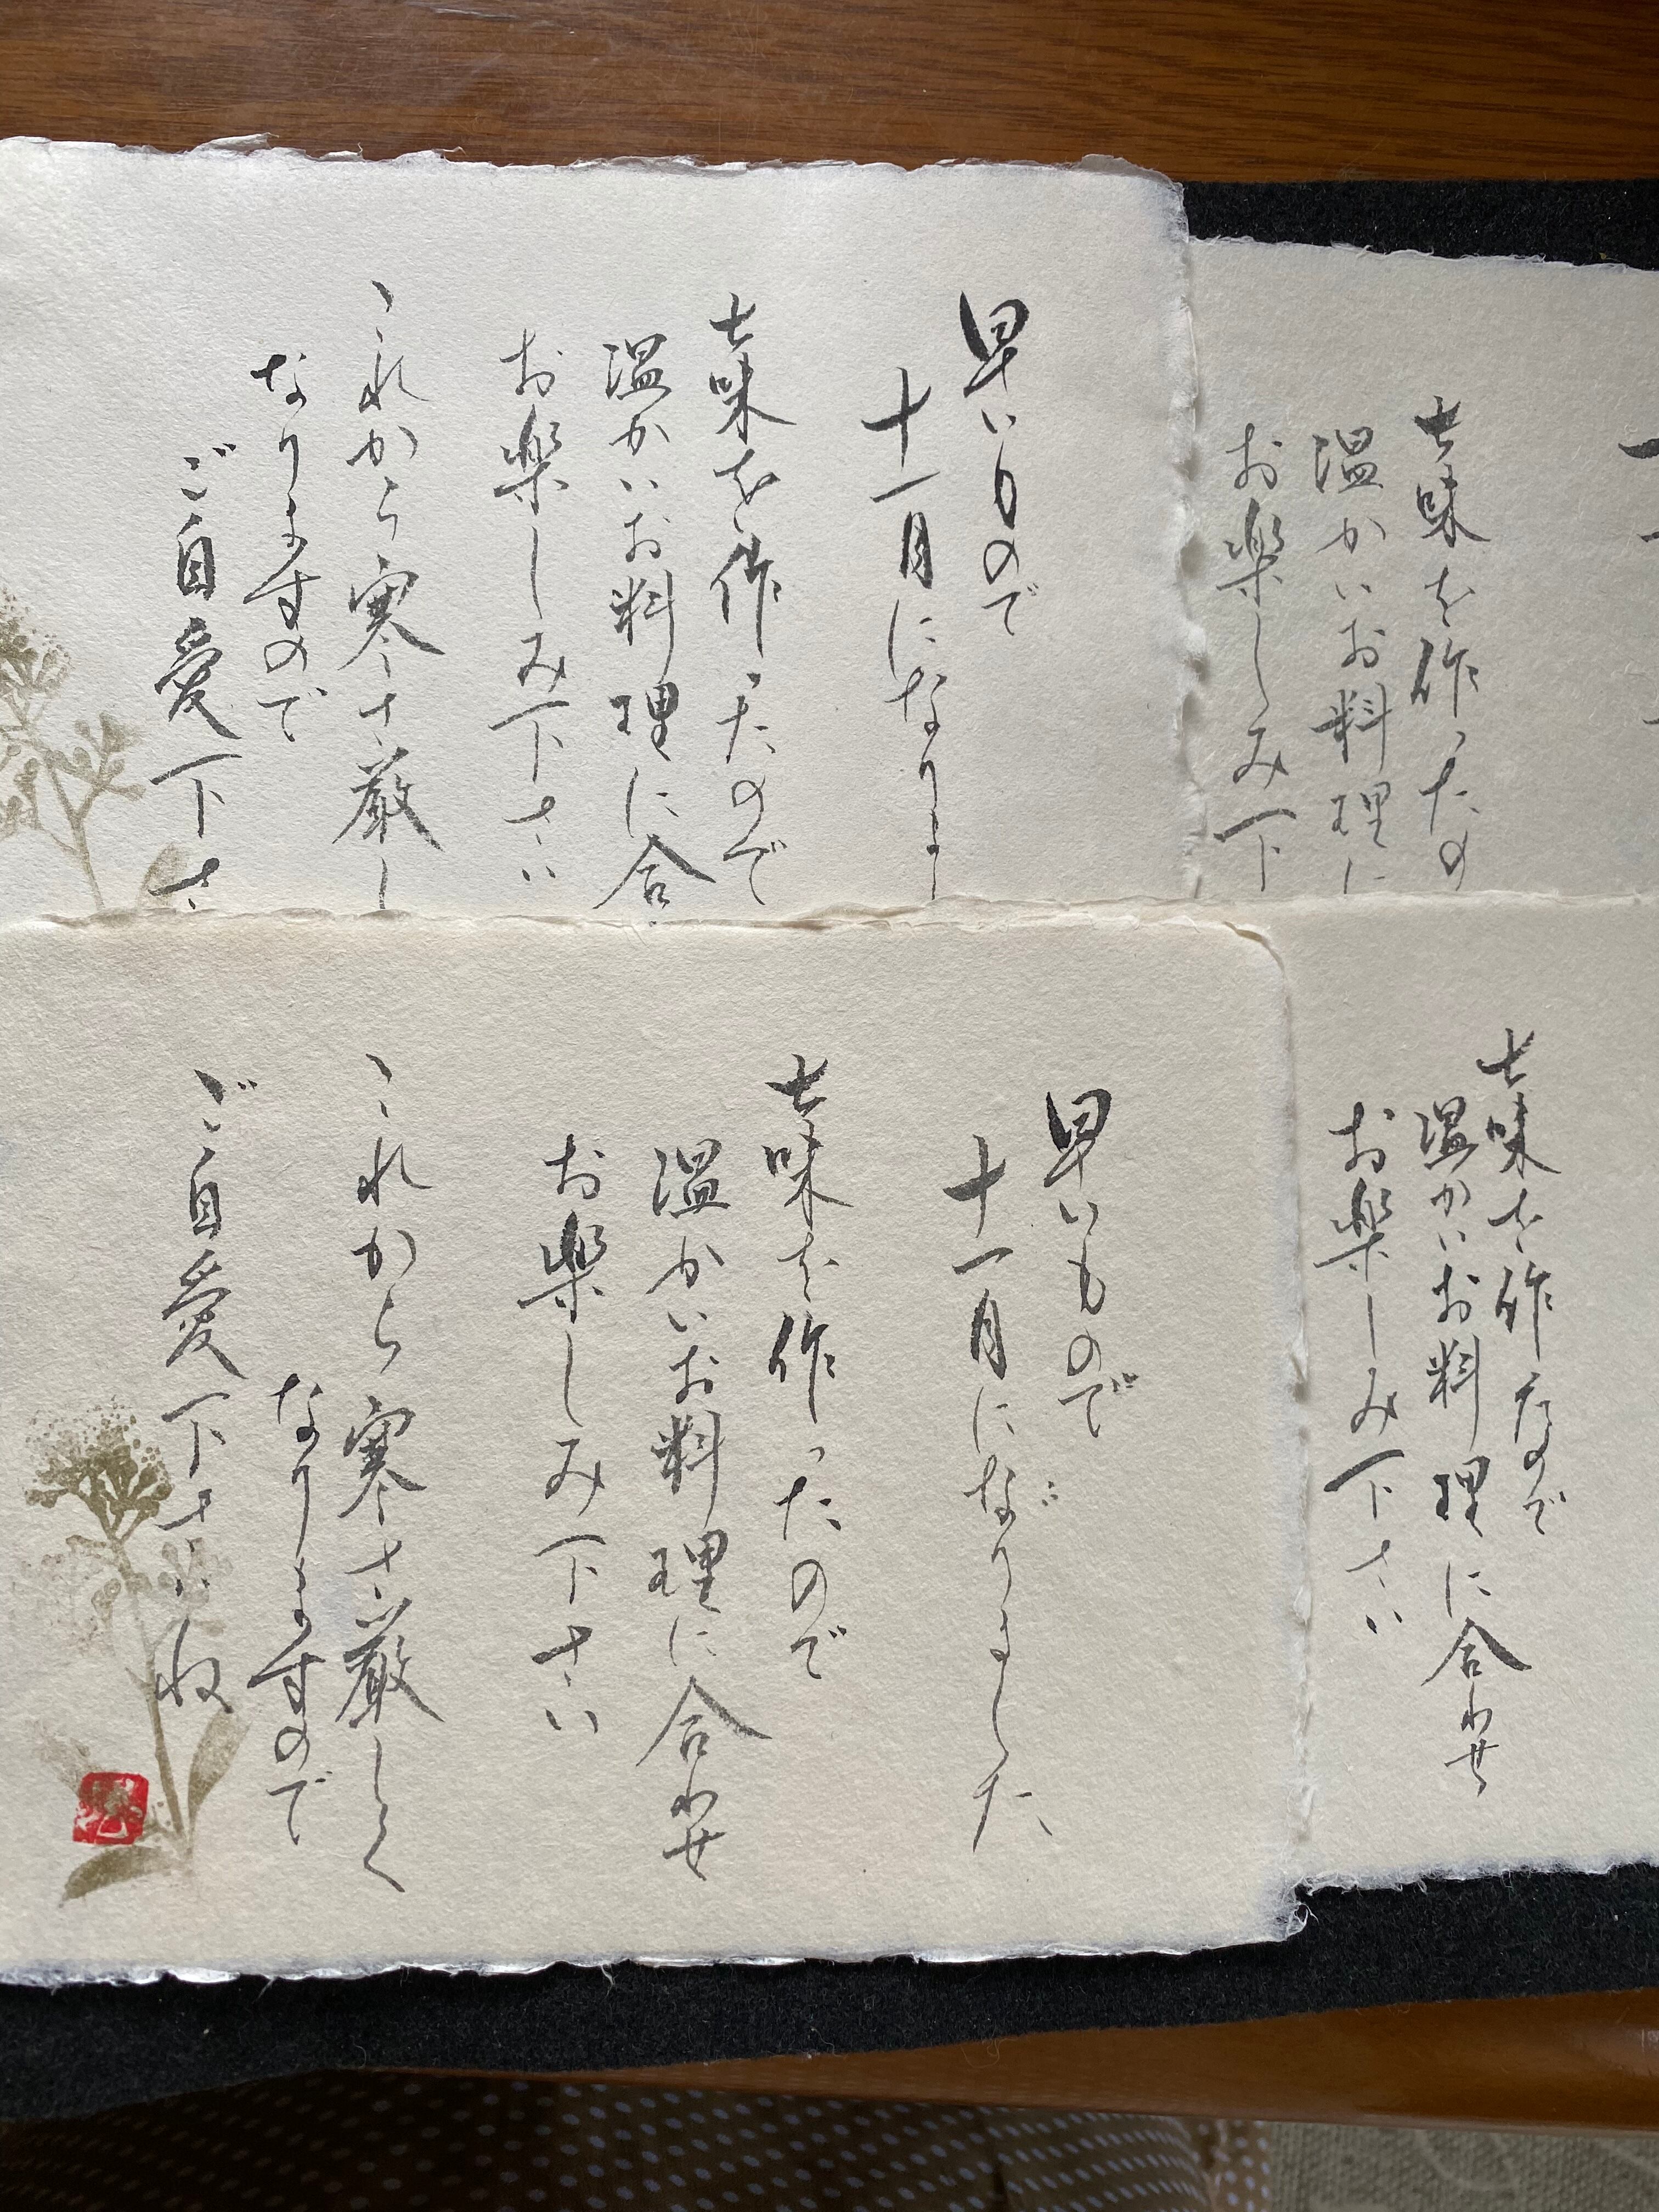 早いもので
十一月になりま
七味を作ったので
温かいお料理に合
お楽しみ下さい
これから寒さ厳し
なりますので
ご自愛下さ
七味を作ったの
温かいお料理に
お楽しみ下
早いもので
十一月になりました
七味を作ったので
温かいお料理に合わせ
お楽しみ下さい
これから寒さ厳しく
なりますので
ご自愛下さいね
七味を作たので
温かいお料理に合わせ
お楽しみ下さい